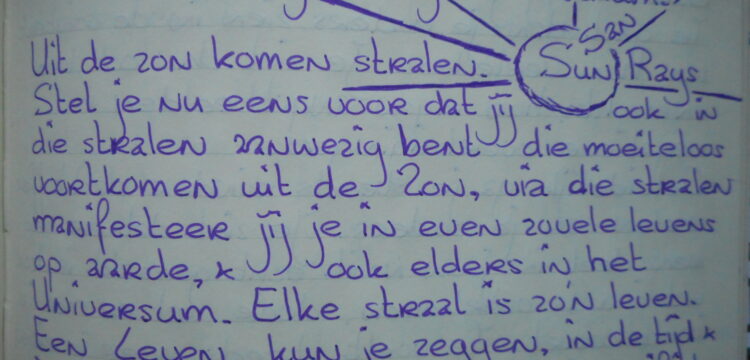 San
Uit de zon komen stralen. Sun Rays
Stel je nu eens voor dat jij ook in
die stralen aanwezig bent die moeiteloos
voortkomen uit de Zon, via die stralen
manifesteer jij je in even zovele levens
op aarde, * ook elders in het
Universum. Elke straal is zo'n leven.
Een Leven, kun je zeggen, in de tijd *